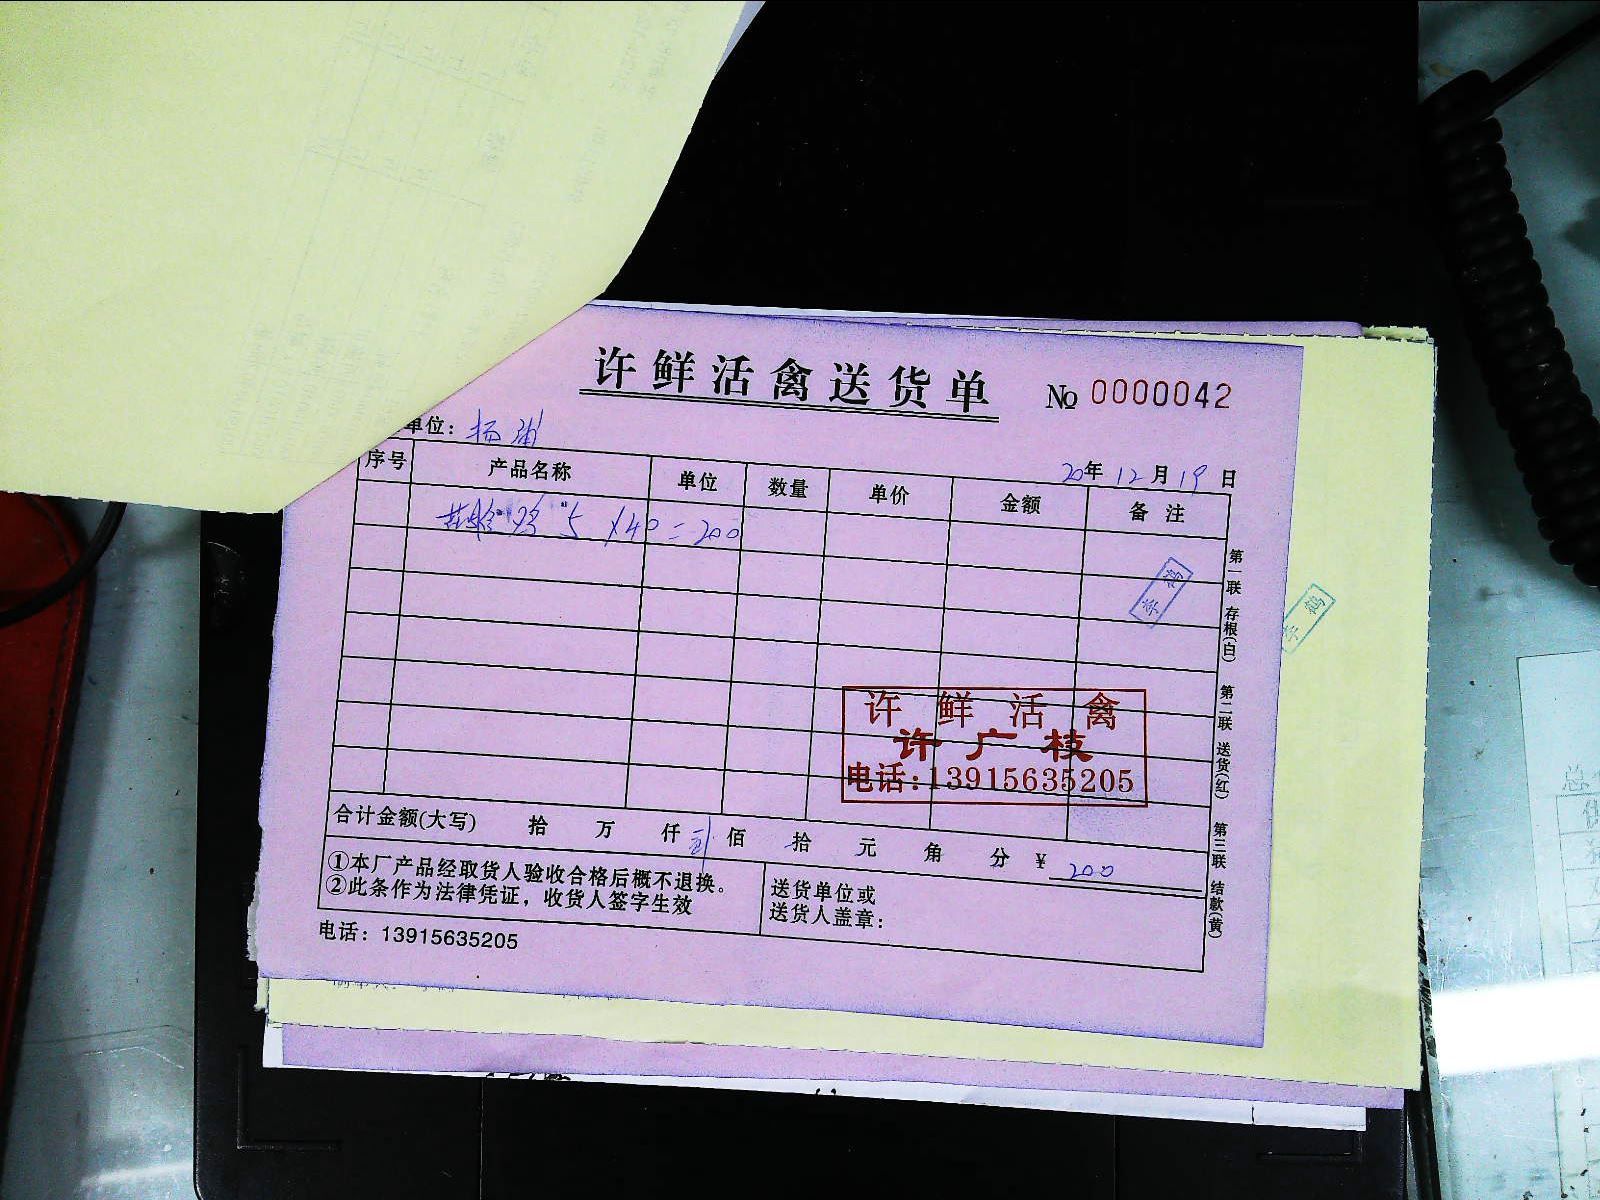 许鲜活禽送货单 No 0000042
单位：杨浦
20年12月19日
序号 产品名称 单位 数量 单价 金额 备注
鸡 5 ×40=200
第一联 存根(白) 第二联 送货(红) 第三联 结款(黄)
许鲜活禽
许广枝
电话:13915635205
合计金额(大写) 拾 万 仟 贰佰 拾 元 角 分 ¥ 200
①本厂产品经取货人验收合格后概不退换。
②此条作为法律凭证，收货人签字生效
送货单位或
送货人盖章：
电话：13915635205